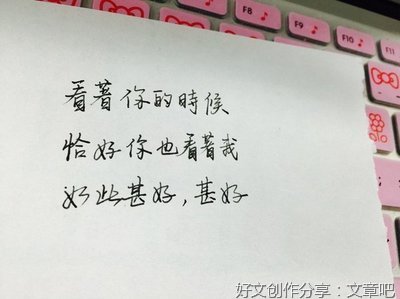 F8
F9
F10
F11
看著你的時候
恰好你也看著我
如此甚好,甚好
好文创作分享：文章吧